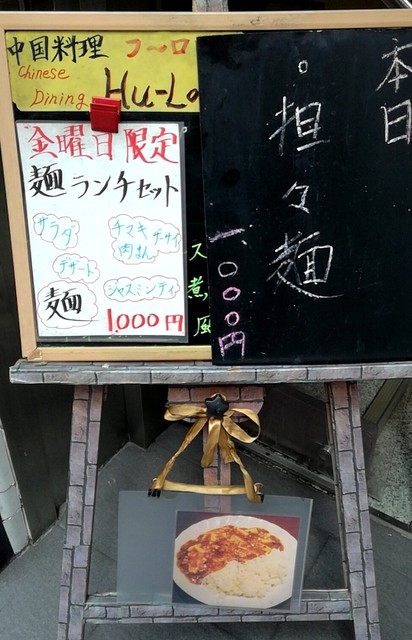 中国料理 フーロ
Chinese
Dining Hu-Lo
金曜日限定
麺ランチセット
サラダ
チマキ or サイ
肉まん
デザート
麺
ジャスミンティ
1,000円
ス
煮
風
本日
。担々麺
一、〇〇〇円